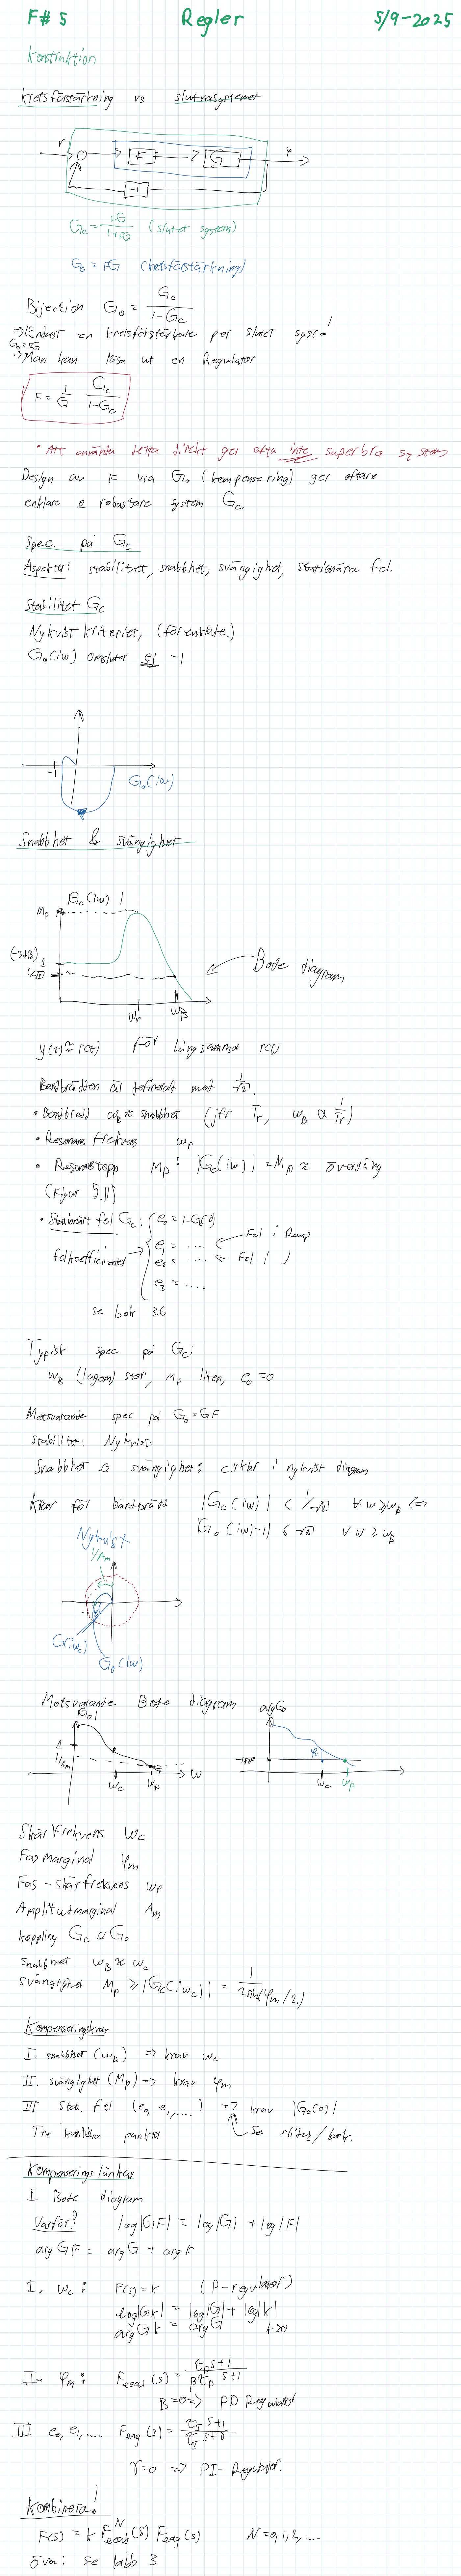 F# 5 Regler 5/9-2025
Konstruktion
Kretsförstärkning vs slutna systemet
r F G y
-1
Gc = FG/(1+FG) (slutet system)
G0 = FG (kretsförstärkning)
Bijection G0 = Gc/(1-Gc)
=> Endast en kretsförstärkare per slutet system!
G0=FG
=> Man kan lösa ut en Regulator
F = 1/G Gc/(1-Gc)
• Att använda detta direkt ger ofta inte superbra system
Design av F via G0 (kompensering) ger oftare
enklare & robustare system Gc.
Spec. på Gc
Aspekter: stabilitet, snabbhet, svängighet, stationära fel.
Stabilitet Gc
Nykvist kriteriet, (förenklate.)
G0(iω) omsluter ej -1
-1
G0(iω)
Snabbhet & svängighet
|Gc(iω)|
Mp
(-3dB) 1
1/√2
Bode diagram
ωr ωB
y(t) ≈ r(t) för långsamma r(t)
Bandbredden är definerad med 1/√2.
• Bandbredd ωB ≈ snabbhet (jfr Tr, ωB ∝ 1/Tr)
• Resonans frekvens ωr
• Resonanstopp Mp: |Gc(iω)| = Mp ≈ översläng
(Figur 5.11)
• Stationärt fel Gc: e0 = 1-G(0)
e1 = .... Fel i Ramp
felkoefficienter e2 = ... Fel i )
e3 = ....
se bok 3.6
Typisk spec på Gc:
ωB (lagom) stor, Mp liten, e0 = 0
Motsvarande spec på G0 = GF
Stabilitet: Nykvist.
Snabbhet & svängighet: cirklar i nykvist diagram
Krav för bandbredd |Gc(iω)| < 1/√2 ∀ ω ≥ ωB <=>
|G0(iω)-1| < √2 ∀ ω ≥ ωB
Nykvist
1/Am
-1
G(iωc)
G0(iω)
Motsvarande Bode diagram
|G0| arg G0
1
1/Am
φc
-180
ωc ωp ω ωc ωp
Skärfrekvens ωc
Fasmarginal φm
Fas-skärfrekvens ωp
Amplitudmarginal Am
koppling Gc & G0
snabbhet ωB ≈ ωc
svängighet Mp ≥ |Gc(iωc)| = 1/(2sin(φm/2))
Kompenseringskrav
I. snabbhet (ωB) => krav ωc
II. svängighet (Mp) => krav φm
III Stat. fel (e0, e1, ....) => krav |G0(0)|
Tre kritiska punkter Se slides/bok.
Kompenserings länkar
I Bode diagram
Varför? log|GF| = log|G| + log|F|
arg GF = arg G + arg F
I. ωc: F(s) = k (P-regulator)
log|Gk| = log|G| + log|k|
arg Gk = arg G k>0
II. φm: Flead(s) = (τD s+1)/(βτD s+1)
β=0 => PD Regulator
III e0, e1, .... Flag(s) = (τI s+1)/(τI s+γ)
γ=0 => PI-Regulator.
Kombinera!
F(s) = k F^N lead(s) Flag(s) N = 0,1,2,....
öva: se labb 3